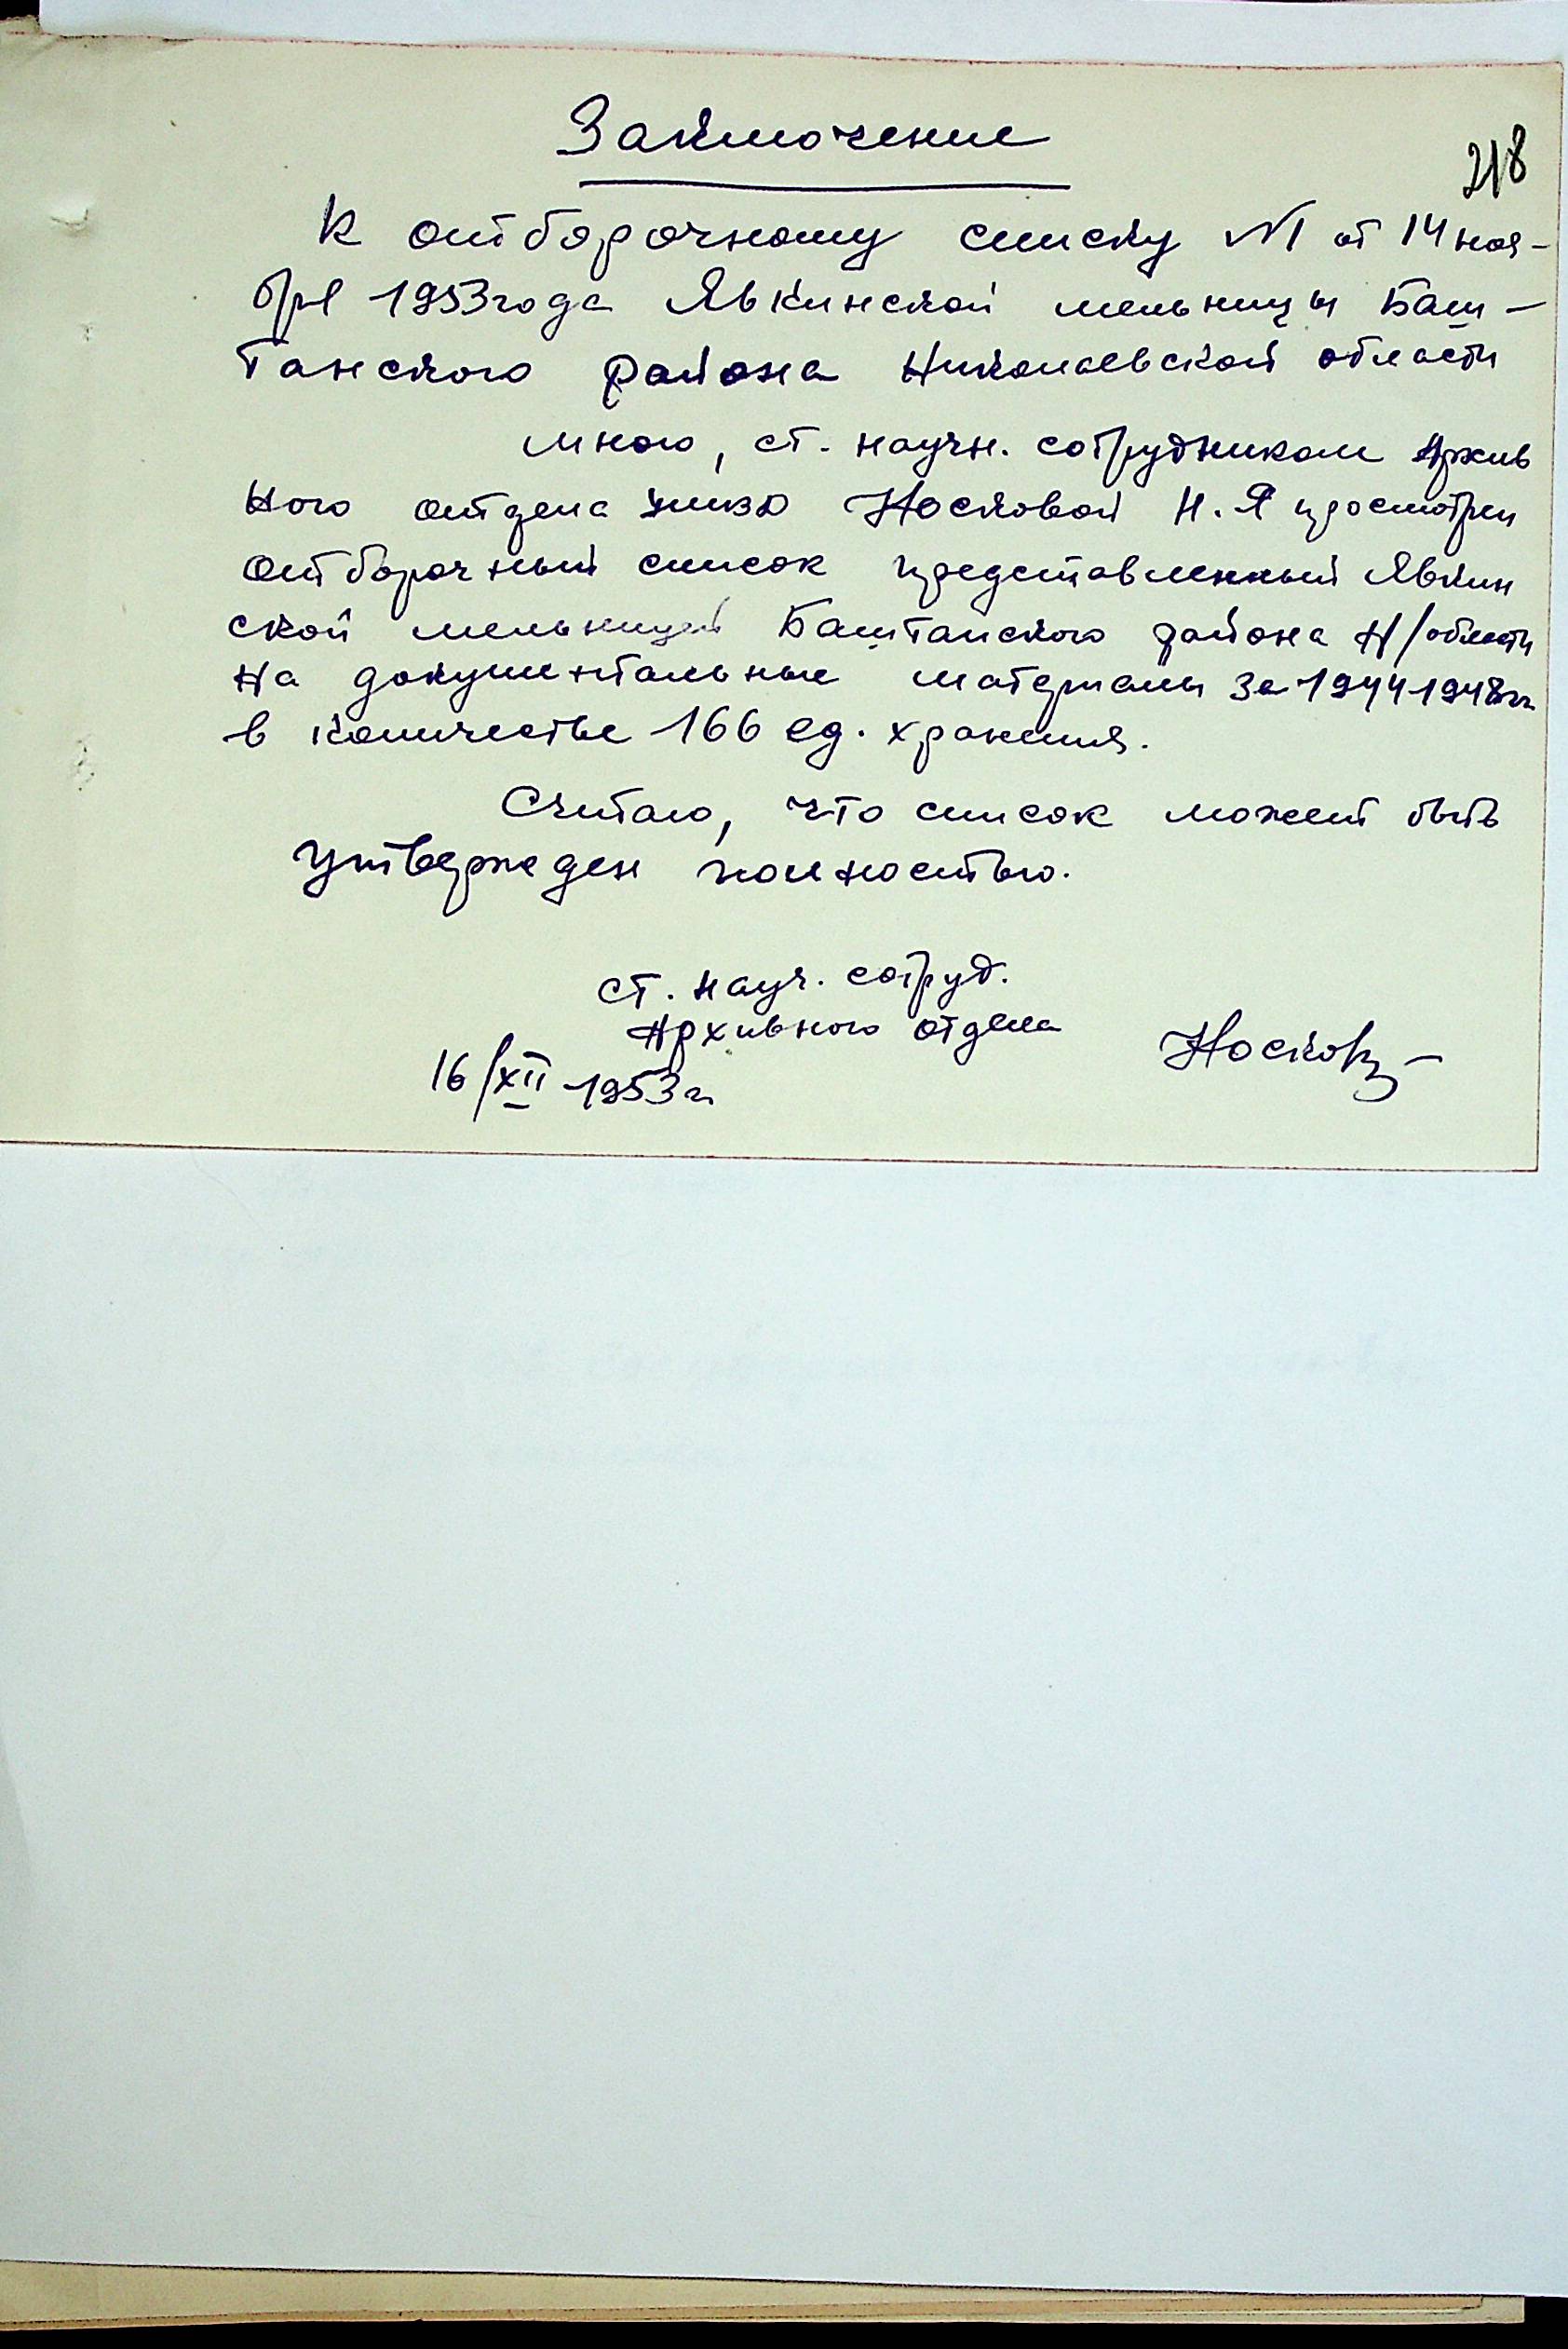 Заключение
218
к отборочному списку №1 от 14 ноя-
бря 1953 года Явкинской мельницы Баш-
танского района Николаевской области
мною, ст. научн. сотрудником Архив
ного отдела УМВД Носковой Н. Я просмотрен
отборочный список представленный Явкин
ской мельницей Баштанского района Н/области
на документальные материалы за 1944-1948 гг.
в количестве 166 ед. хранения.
Считаю, что список может быть
утвержден полностью.
ст. науч. сотруд.
Архивного отдела
Носкова
16/XII 1953 г.